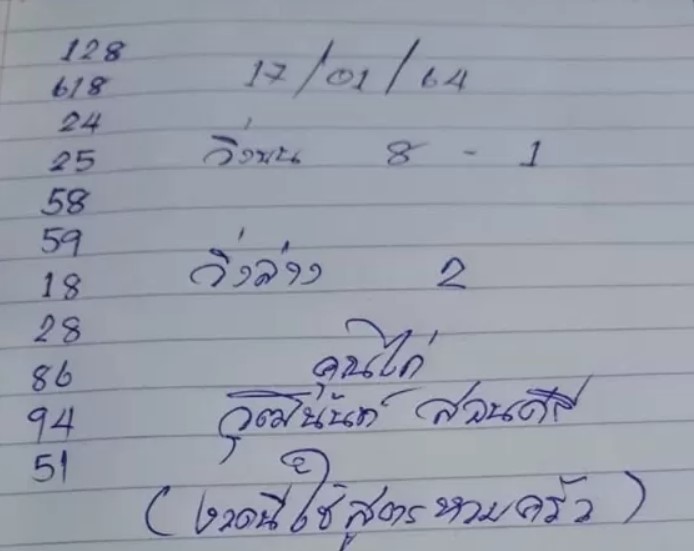 128
618
24
25
58
59
18
28
86
94
51
17/01/64
วิ่งบน 8 - 1
วิ่งล่าง 2
คุณไก่
วุฒินันท์ สอนศรี
(งวดนี้ใช้สูตรหวมครัว)